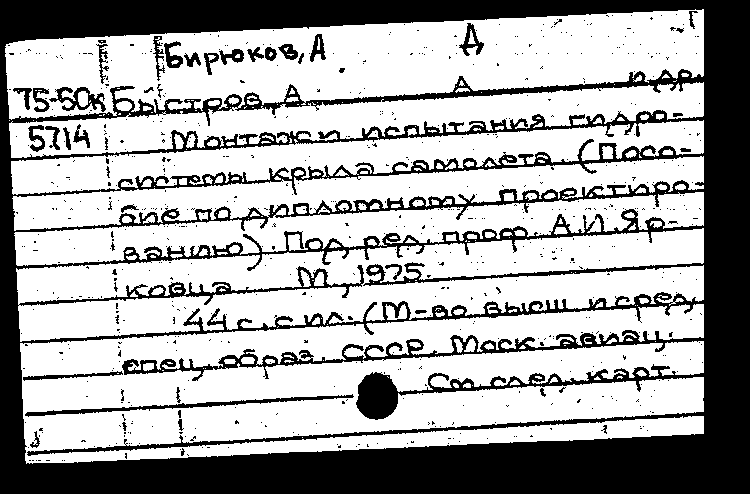 Бирюков, А Д
75-50к Быстров, А А и др.
5714 Монтаж и испытания гидро-
системы крыла самолета. (Посо-
бие по дипломному проектиро-
ванию). Под ред. проф. А.И. Яр-
ковца. М., 1975.
44 с. с ил. (М-во высш и сред.
спец. образ. СССР. Моск. авиац.
См. след. карт.